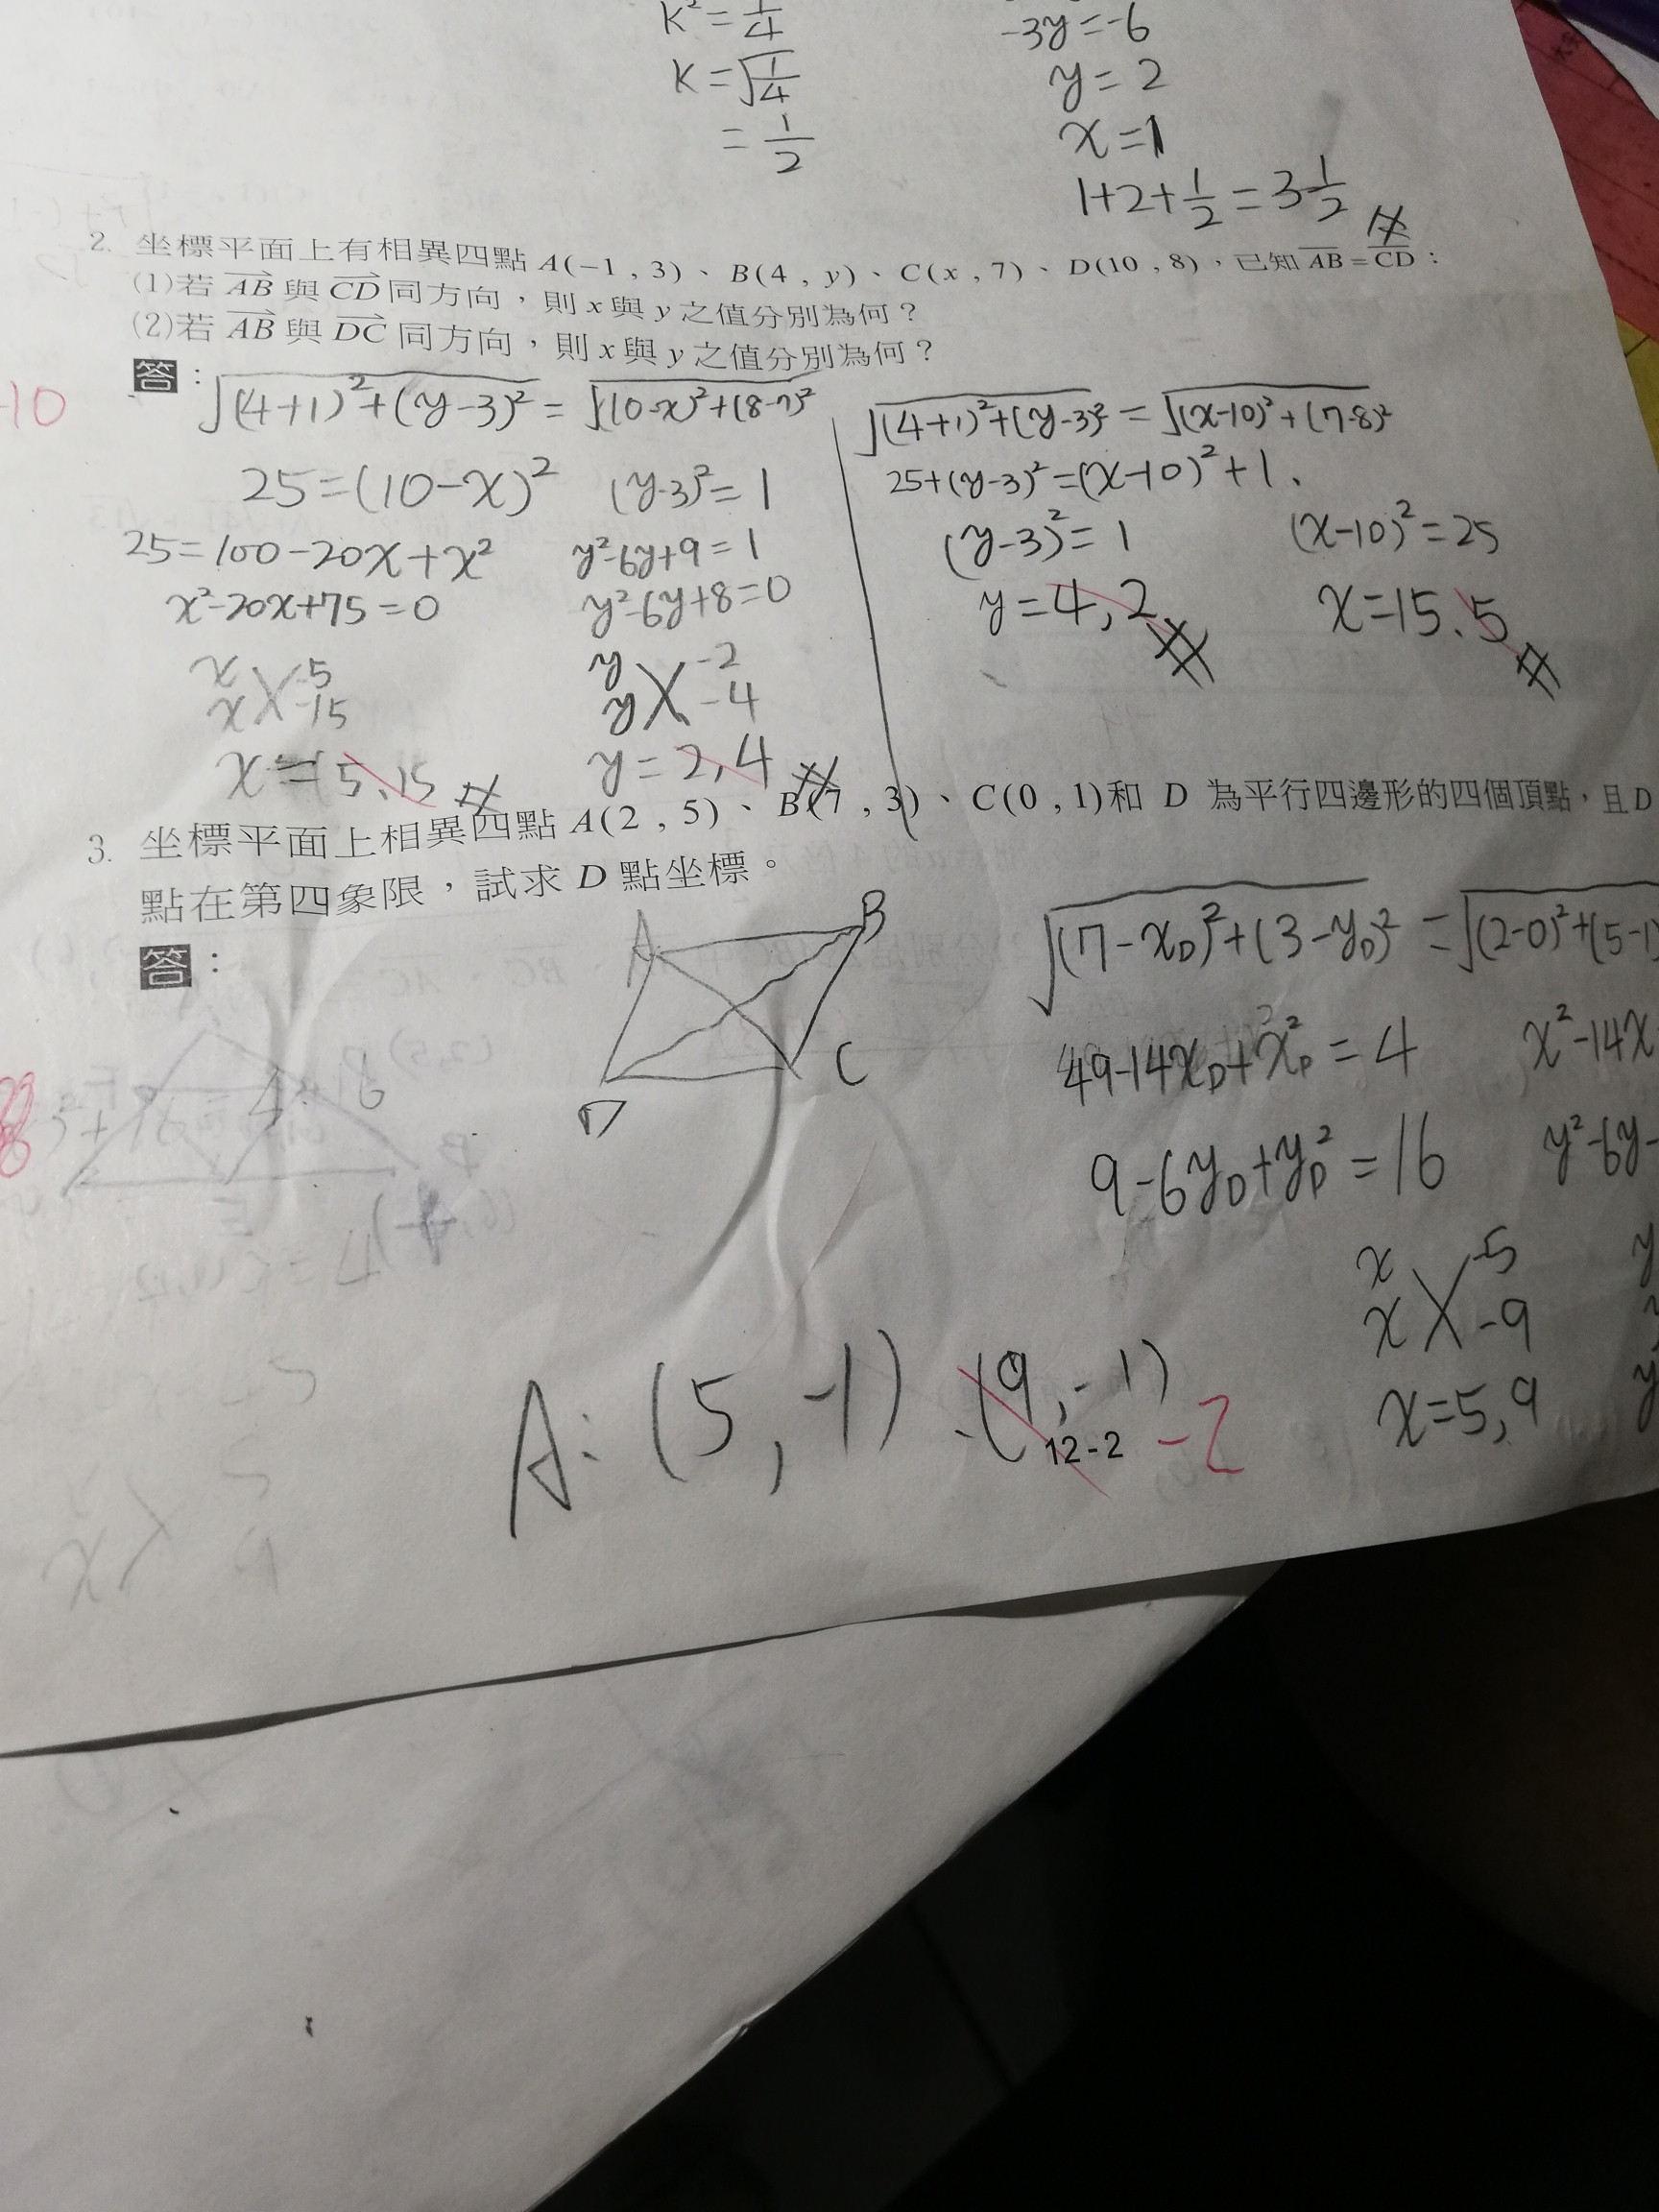 K²=1/4
K=√(1/4)
=1/2
-3y=-6
y=2
x=1
1+2+1/2=3 1/2
2. 坐標平面上有相異四點 A(−1 , 3)、B(4 , y)、C(x , 7)、D(10 , 8),已知 AB=CD:
(1)若 AB 與 CD 同方向,則 x 與 y 之值分別為何?
(2)若 AB 與 DC 同方向,則 x 與 y 之值分別為何?
答:
-10
√(4+1)²+(y-3)² = √(10-x)²+(8-7)²
25=(10-x)² (y-3)²=1
25=100-20x+x² y²-6y+9=1
x²-20x+75=0 y²-6y+8=0
x -5 y -2
x -15 y -4
x=5、15 y=2,4
√(4+1)²+(y-3)² = √(x-10)²+(7-8)²
25+(y-3)²=(x-10)²+1.
(y-3)²=1 (x-10)²=25
y=4,2 x=15、5
3. 坐標平面上相異四點 A(2 , 5)、B(7 , 3)、C(0 , 1)和 D 為平行四邊形的四個頂點,且 D
點在第四象限,試求 D 點坐標。
答:
A B
D C
√(7-xD)²+(3-yD)² = √(2-0)²+(5-1)
49-14xD+xD²=4 x²-14x
9-6yD+yD²=16 y²-6y-
x -5 y
x -9
x=5,9 y
A:(5,-1)、(9,-1)
12-2 -2